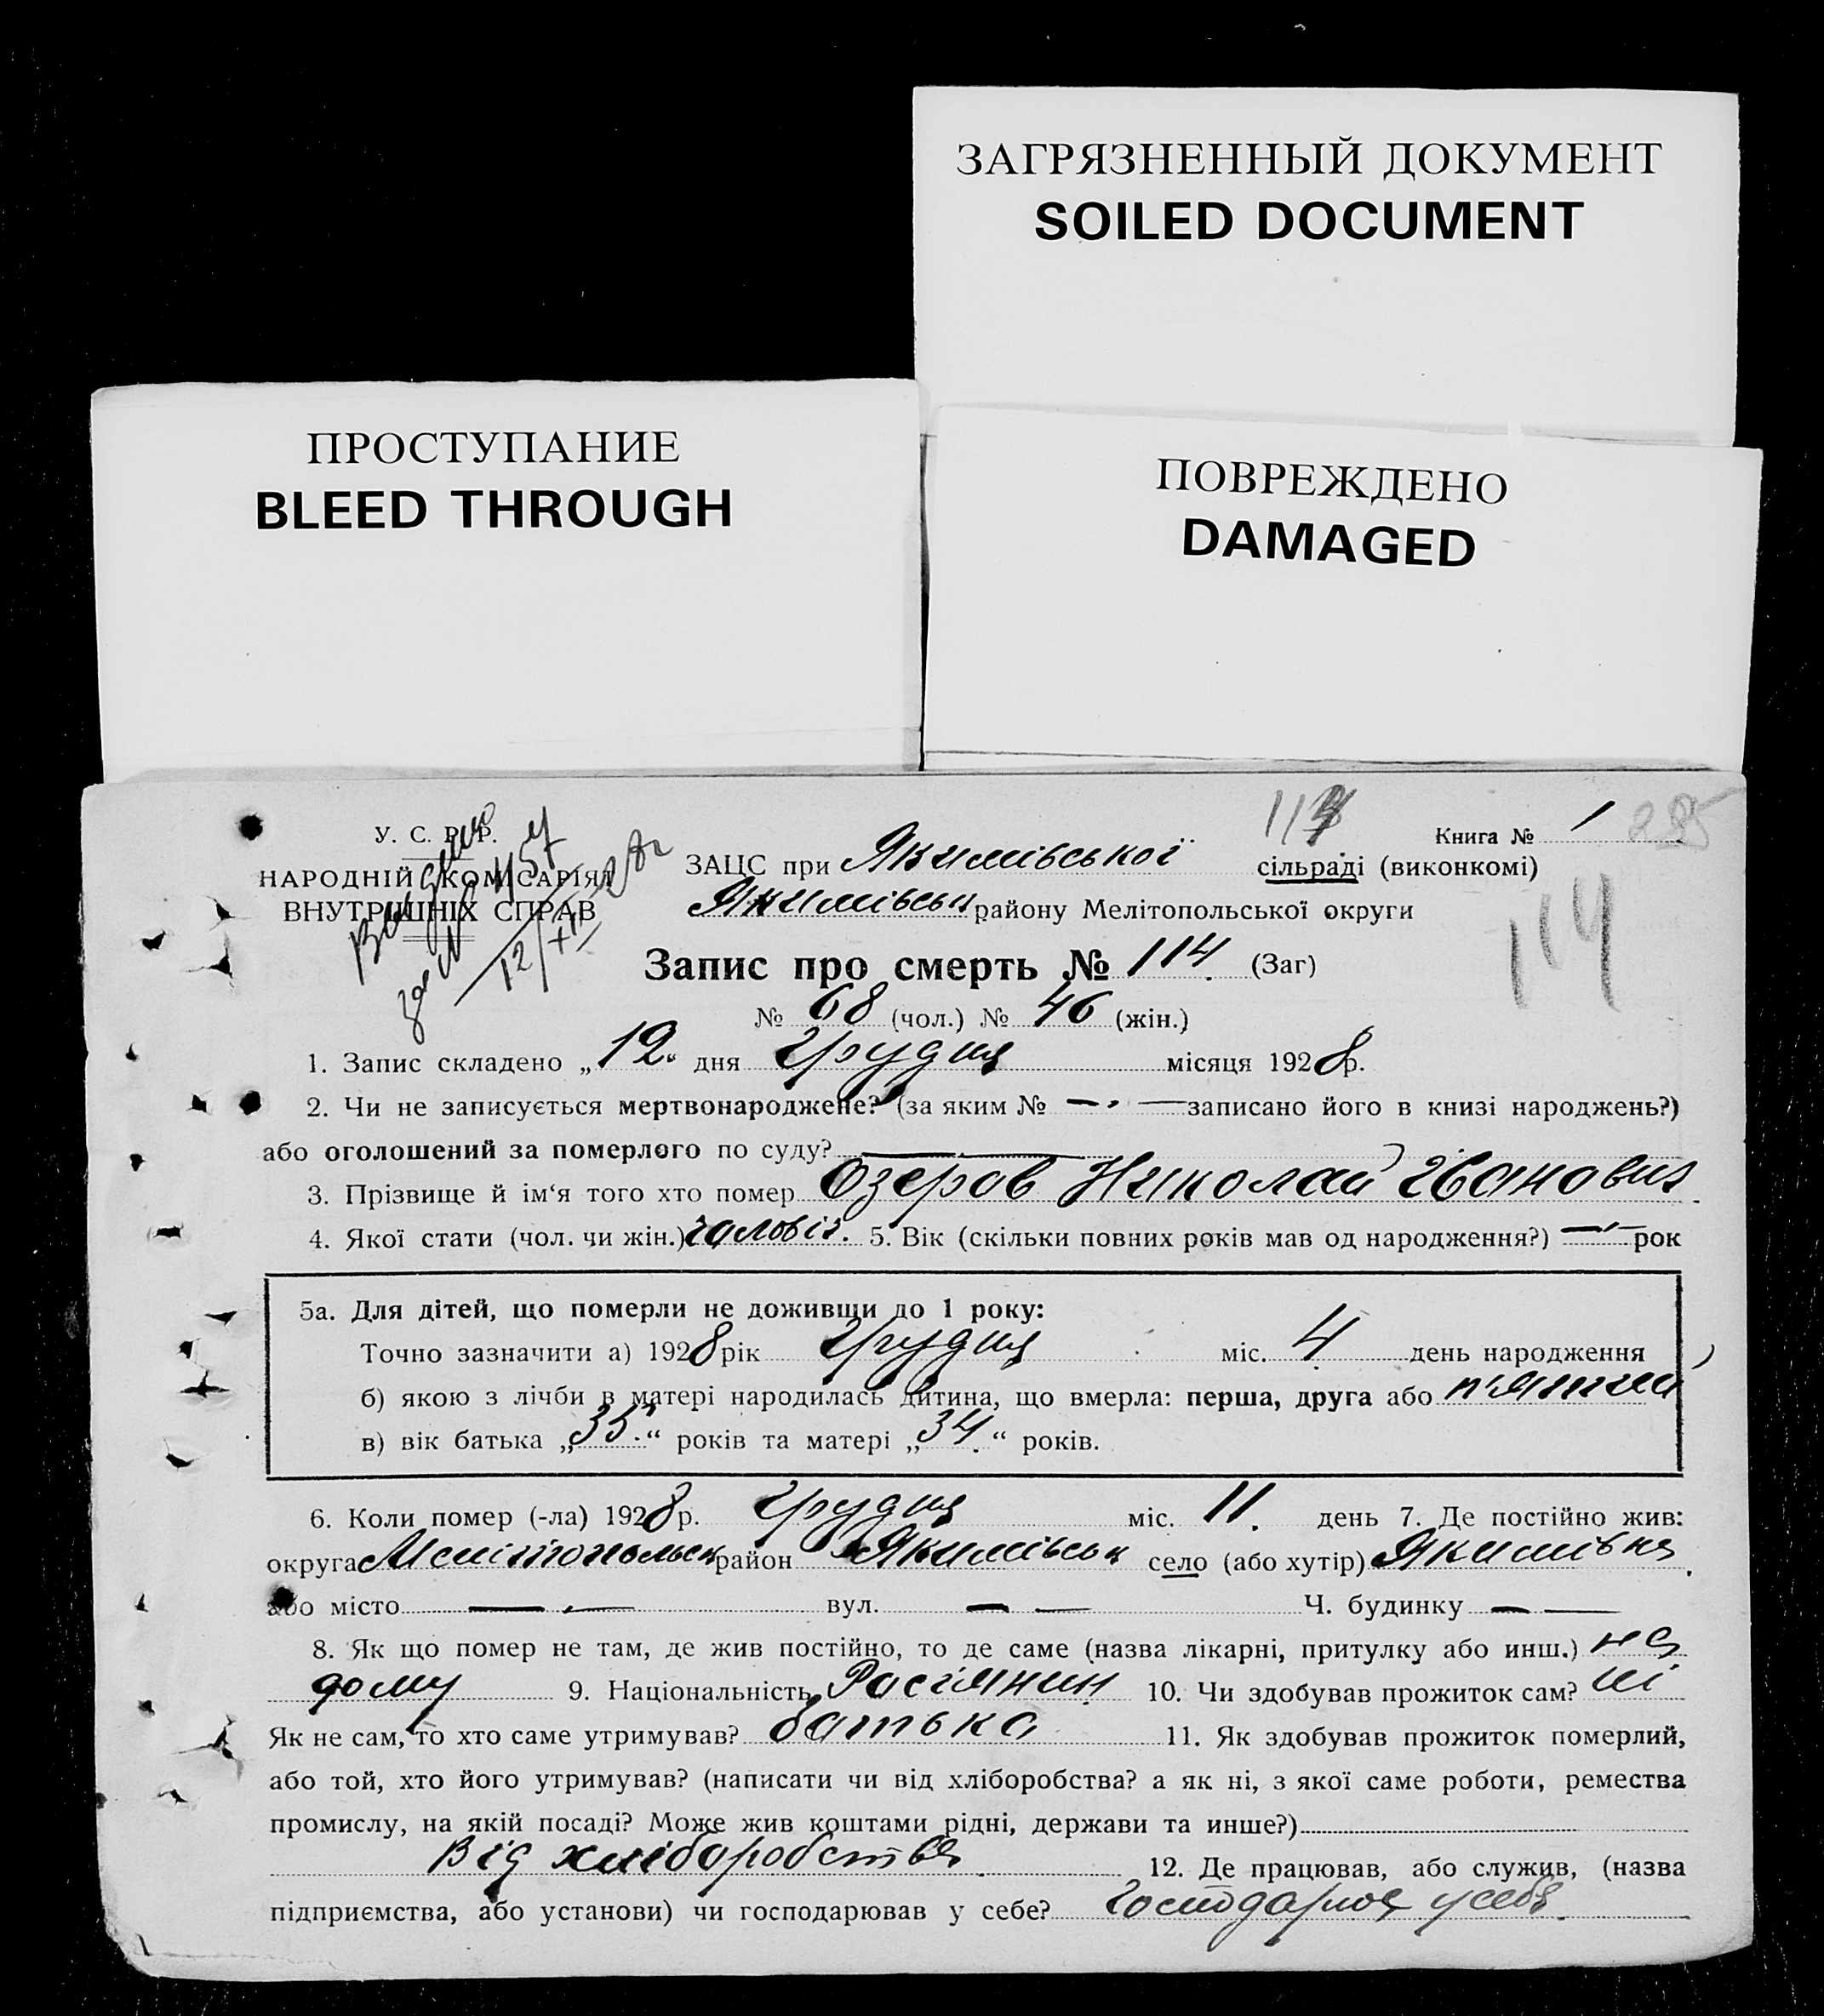 ЗАГРЯЗНЕННЫЙ ДОКУМЕНТ
SOILED DOCUMENT
ПРОСТУПАНИЕ
BLEED THROUGH
ПОВРЕЖДЕНО
DAMAGED
У. С. Р. Р.
НАРОДНІЙ КОМІСАРІЯТ
ВНУТРІШНІХ СПРАВ
12/XII 28 г
114
Книга № 1
285
ЗАЦС при Якимівської сільраді (виконкомі)
Якимівськ району Мелітопольської округи
114
Запис про смерть № 114 (Заг)
№ 68 (чол.) № 46 (жін.)
1. Запис складено „12“ дня Грудня місяця 1928р.
2. Чи не записується мертвонароджене? (за яким № — — записано його в книзі народжень?)
або оголошений за померлого по суду? — —
3. Прізвище й ім‘я того хто помер Озеров Николай Іванович
4. Якої стати (чол. чи жін.) чоловіч. 5. Вік (скільки повних років мав од народження?) — рок
5а. Для дітей, що померли не доживши до 1 року:
Точно зазначити а) 1928 рік Грудня міс. 4 день народження
б) якою з лічби в матері народилась дитина, що вмерла: перша, друга або п'ятий
в) вік батька „35“ років та матері „34“ років.
6. Коли помер (-ла) 1928р. Грудня міс. 11. день 7. Де постійно жив:
округа Мелітопольськ район Якимівськ село (або хутір) Якимівка.
або місто — — вул. — — Ч. будинку — —
8. Як що помер не там, де жив постійно, то де саме (назва лікарні, притулку або инш.) на
дому 9. Національність Росіянин 10. Чи здобував прожиток сам? ні
Як не сам, то хто саме утримував? батько 11. Як здобував прожиток померлий,
або той, хто його утримував? (написати чи від хліборобства? а як ні, з якої саме роботи, ремества
промислу, на якій посаді? Може жив коштами рідні, держави та инше?)
Від хліборобства. 12. Де працював, або служив, (назва
підприємства, або установи) чи господарював у себе? господарює у себе.